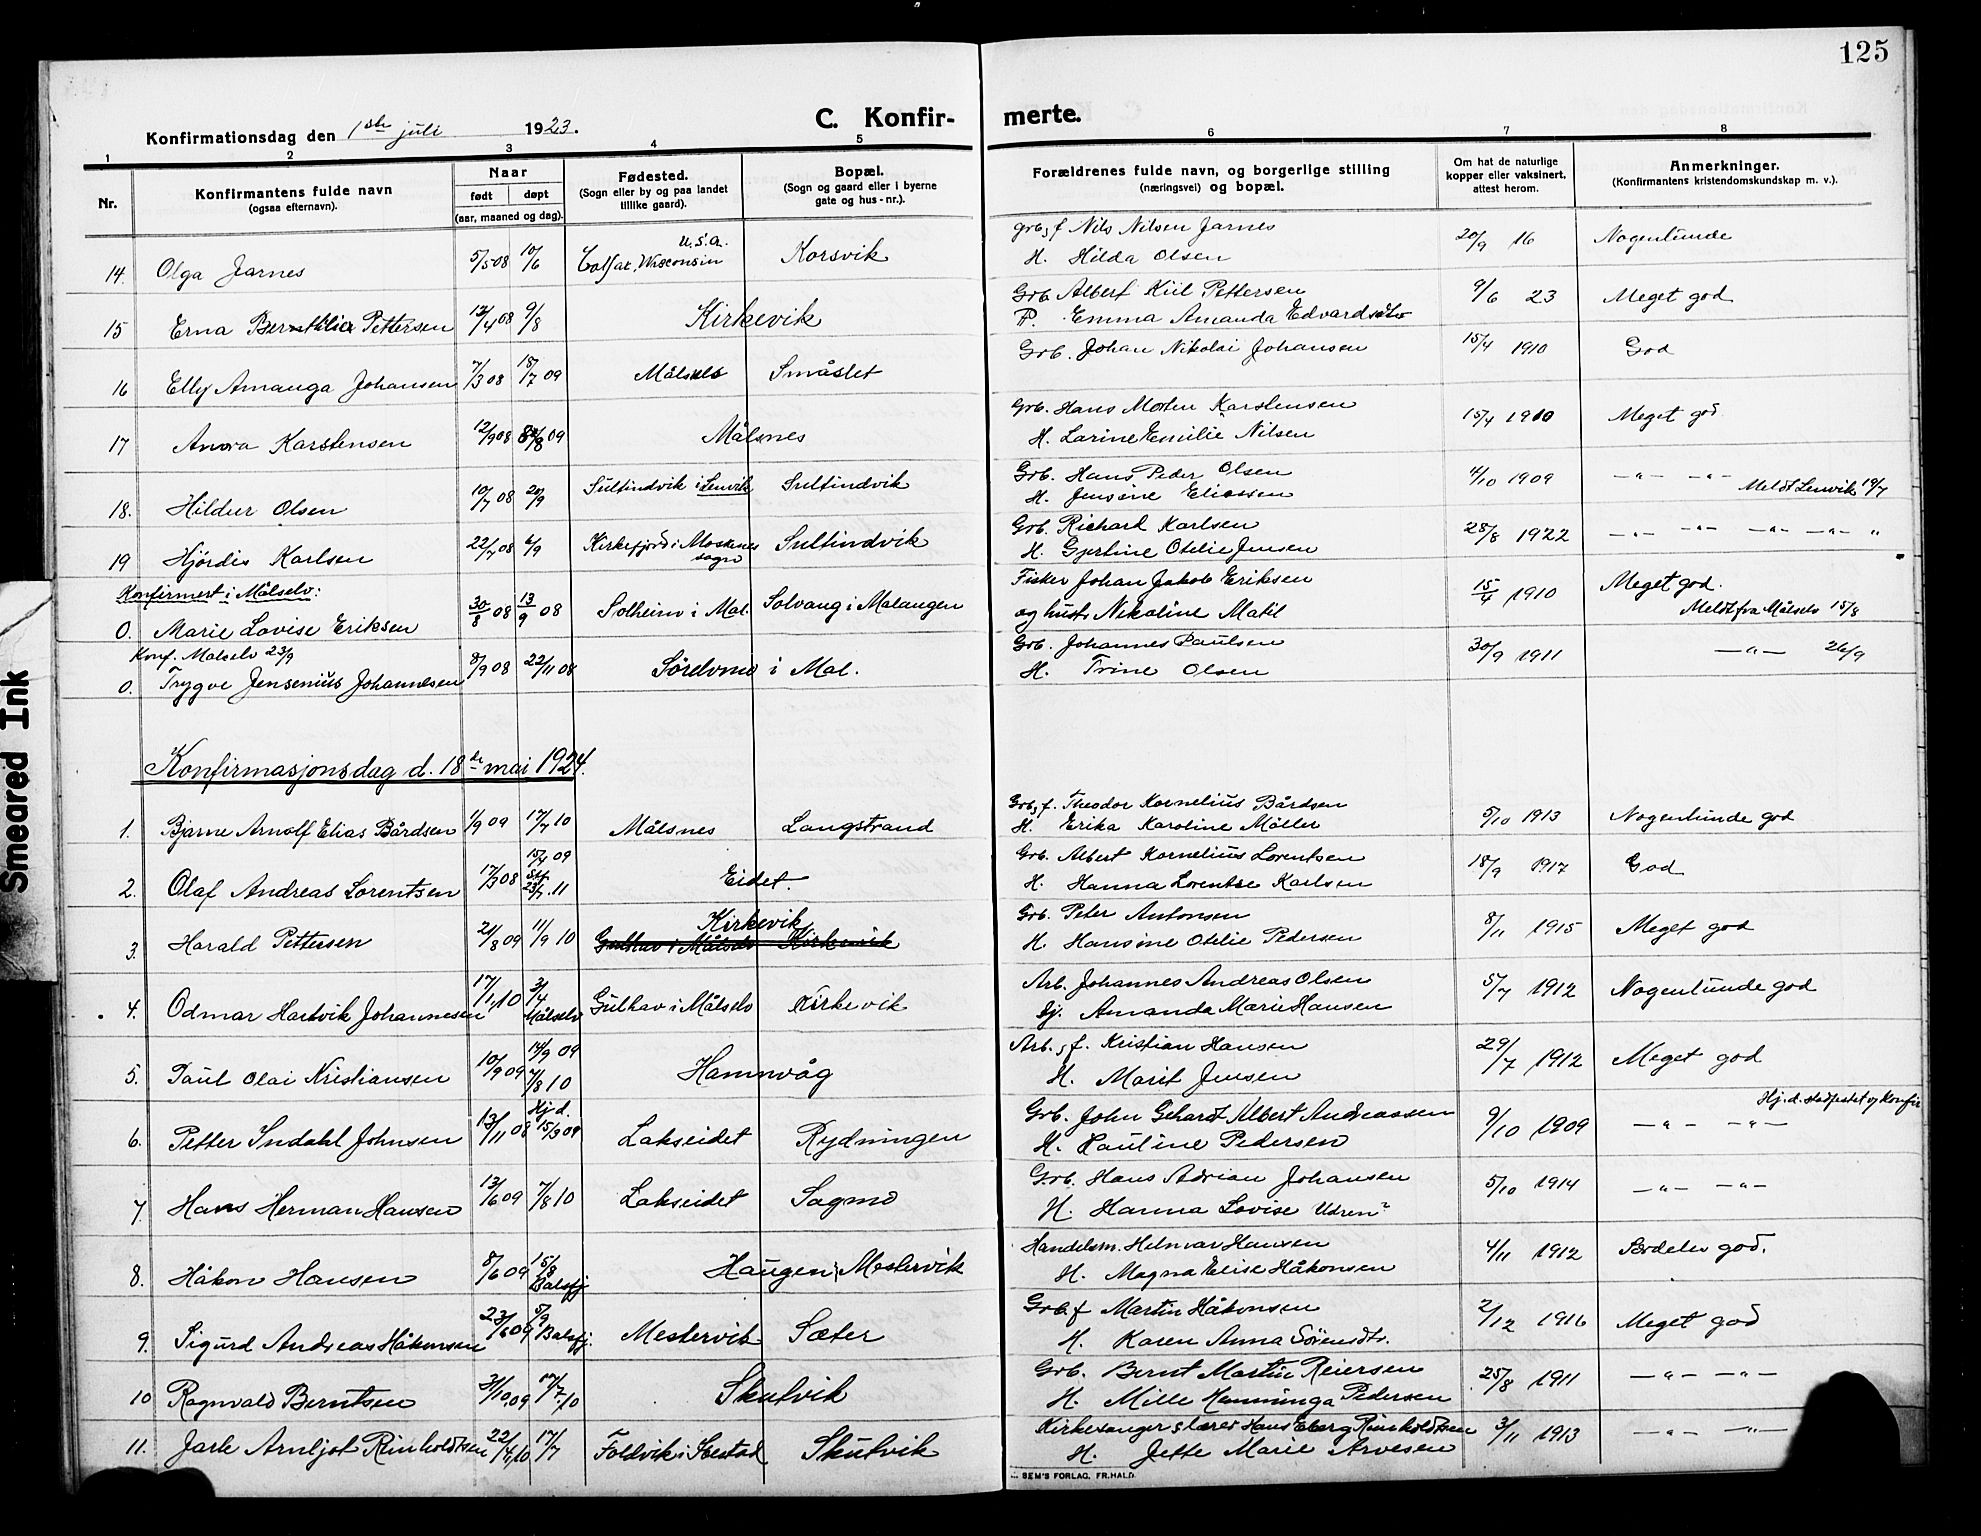 125
C. Konfirmerte.
Konfirmationsdag den 1ste juli 1923.
1 2 3 4 5 6 7 8
Nr. Konfirmantens fulde navn (ogsaa efternavn). Naar født døpt (aar, maaned og dag). Fødested. (Sogn eller by og paa landet tillike gaard). Bopæl. (Sogn og gaard eller i byerne gate og hus-nr.). Forældrenes fulde navn, og borgerlige stilling (næringsvei) og bopæl. Om hat de naturlige kopper eller vaksinert, attest herom. Anmerkninger. (Konfirmantens kristendomskundskap m. v.).
14. Olga Jarnes 5/5 08 10/6 Colfax, Wisconsin U.S.A. Korsvik Grb, f Nils Nilsen Jarnes 20/9 16 Nogenlunde
H. Hilda Olsen
15 Erna Bernthilie Pettersen 12/4 08 9/8 Kirkevik Grb. Albert Kiil Pettersen 9/6 23 Meget god
P. Emma Amanda Edvardsdtr
16 Elly Amanga Johansen 7/3 08 18/7 09 Målselv Småslet Grb. Johan Nikolai Johansen 15/4 1910 God
17 Anora Karstensen 12/9 08 8/8 09 Målsnes Grb. Hans Morten Karstensen 15/4 1910 Meget god
H. Larine Emilie Nilsen
18. Hildur Olsen 10/7 08 20/9 Sultindvik i Lenvik Sultindvik Grb. Hans Peder Olsen 4/10 1909 -"- -"-
H. Jensine Eliassen Meldt Lenvik 19/7
19 Hjørdis Karlsen 22/7 08 6/9 Kirkefjord i Moskenes sogn Sultindvik Grb. Richard Karlsen 28/8 1922 -"- -"- -"- -"- "
H. Gjertine Otelie Jensen
Konfirmert i Målselv:
0. Marie Lovise Eriksen 30/8 08 13/9 08 Solheim i Mal. Solvang i Malangen Fisker Johan Jakob Eriksen 15/4 1910 Meget god.
og hustr Nikoline Matil Meldt fra Målselv 15/8
Konf. Målselv 23/9
0. Trygve Jensenius Johannesen 8/9 08 22/11 08 Sörelvmo i Mal. Grb. Johannes Paulsen 30/9 1911 -"- 26/9
H. Trine Olsen
Konfirmasjonsdag d. 18de mai 1924.
1. Bjarne Arnolf Elias Bårdsen 1/9 09 17/7 10 Målsnes Langstrand Grb, f. Theodor Kornelius Bårdsen 5/10 1913 Nogenlunde god
H. Erika Karoline Möller
2. Olaf Andreas Lorentsen 17/3 08 15/4 09 Stf 23/7 11 Eidet. Grb. Albert Kornelius Lorentsen 18/9 1917 God
H. Hanna Lorentse Karlsen
3. Harald Pettersen 21/8 09 11/9 10 Kirkevik Gulhav i Målselv Kirkevik Grb. Peter Antonsen 8/11 1915 Meget god
H. Hansine Otelie Pedersen
4. Odmar Hartvik Johannesen 17/1 10 3/4 Målselv Gulhav i Målselv Kirkevik Arb. Johannes Andreas Olsen 5/7 1912 Nogenlunde god
Amanda Marie Hansen
5. Paul Olai Kristiansen 10/9 09 14/9 09 7/8 10 Hamnvåg Arb., f. Kristian Hansen 29/7 1912 Meget god
H. Marit Jensen
6. Petter Indahl Johnsen 13/11 08 Hj.d. 15/3 09 Lakseidet Rydningen Grb. John Gehardt Albert Andreassen 9/10 1909 -"- -"- Hj.d. stadfestet og konfir
H. Pauline Pedersen
7. Hans Herman Hansen 13/6 09 7/8 10 Lakseidet Sagmo Grb. Hans Adrian Johansen 5/10 1914 -"- -"-
H. Hanna Lovise
8. Håkon Hansen 8/6 09 15/8 Balsfj Haugen i Mestervik Handelsm. Helmar Hansen 4/11 1912 Særdeles god.
H. Magna Elise Håkonsen
9. Sigurd Andreas Håkonsen 23/6 09 5/9 Balsfj. Mestervik Sæter Grb. f Martin Håkonsen 2/12 1916 Meget god
H. Karen Anna Sörensdtr.
10 Ragnvald Berntsen 31/10 09 17/7 10 Skutvik Grb. Bernt Martin Reiersen 25/8 1911 -"- -"-
H. Mille Henninga Pedersen
11. Jarle Arnljot Reinholdtsen 22/4 10 17/7 Foldvik i Ibestad Skutvik Kirkesanger, lærer Hans Eberg Reinholdtsen 3/11 1913 -"- -"-
H. Jette Marie Arvesen
SEM'S FORLAG, FR.HALD.
Smeared Ink